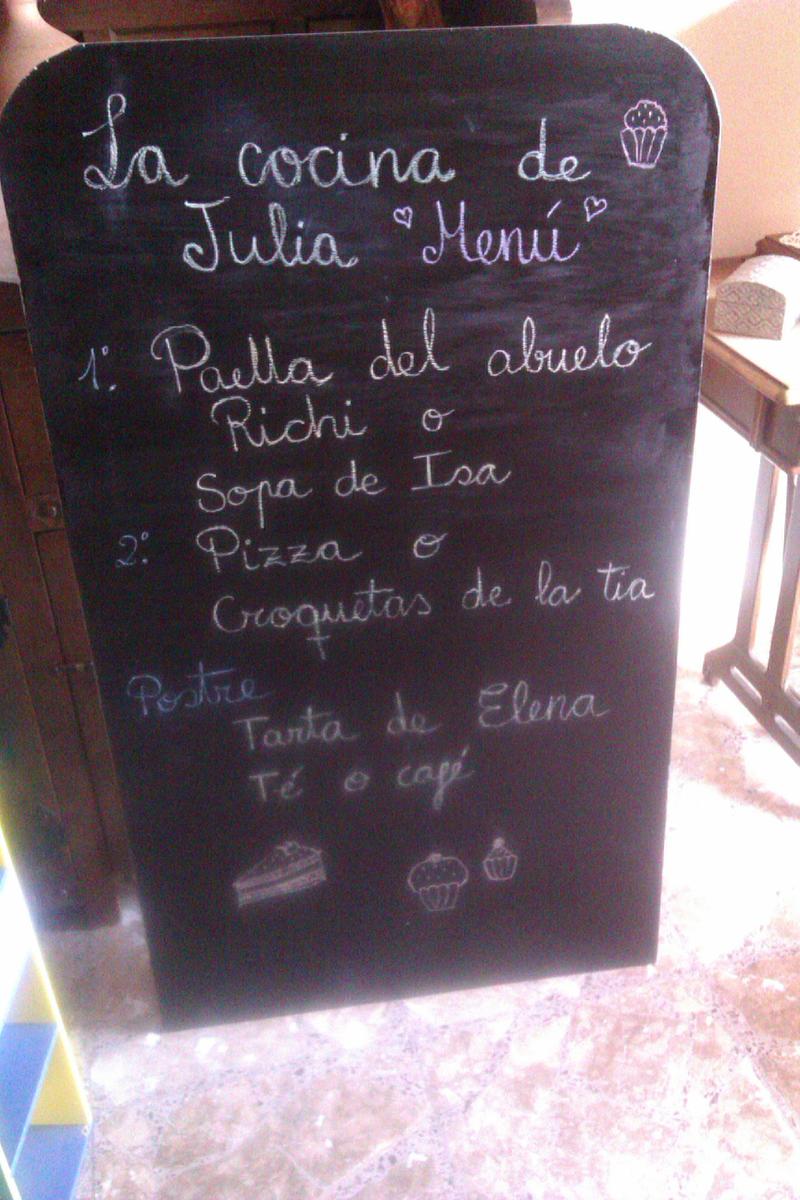 La cocina de
Julia "Menú"
1º. Paella del abuelo
Richi o
Sopa de Isa
2º. Pizza o
Croquetas de la tia
Postre
Tarta de Elena
Té o café